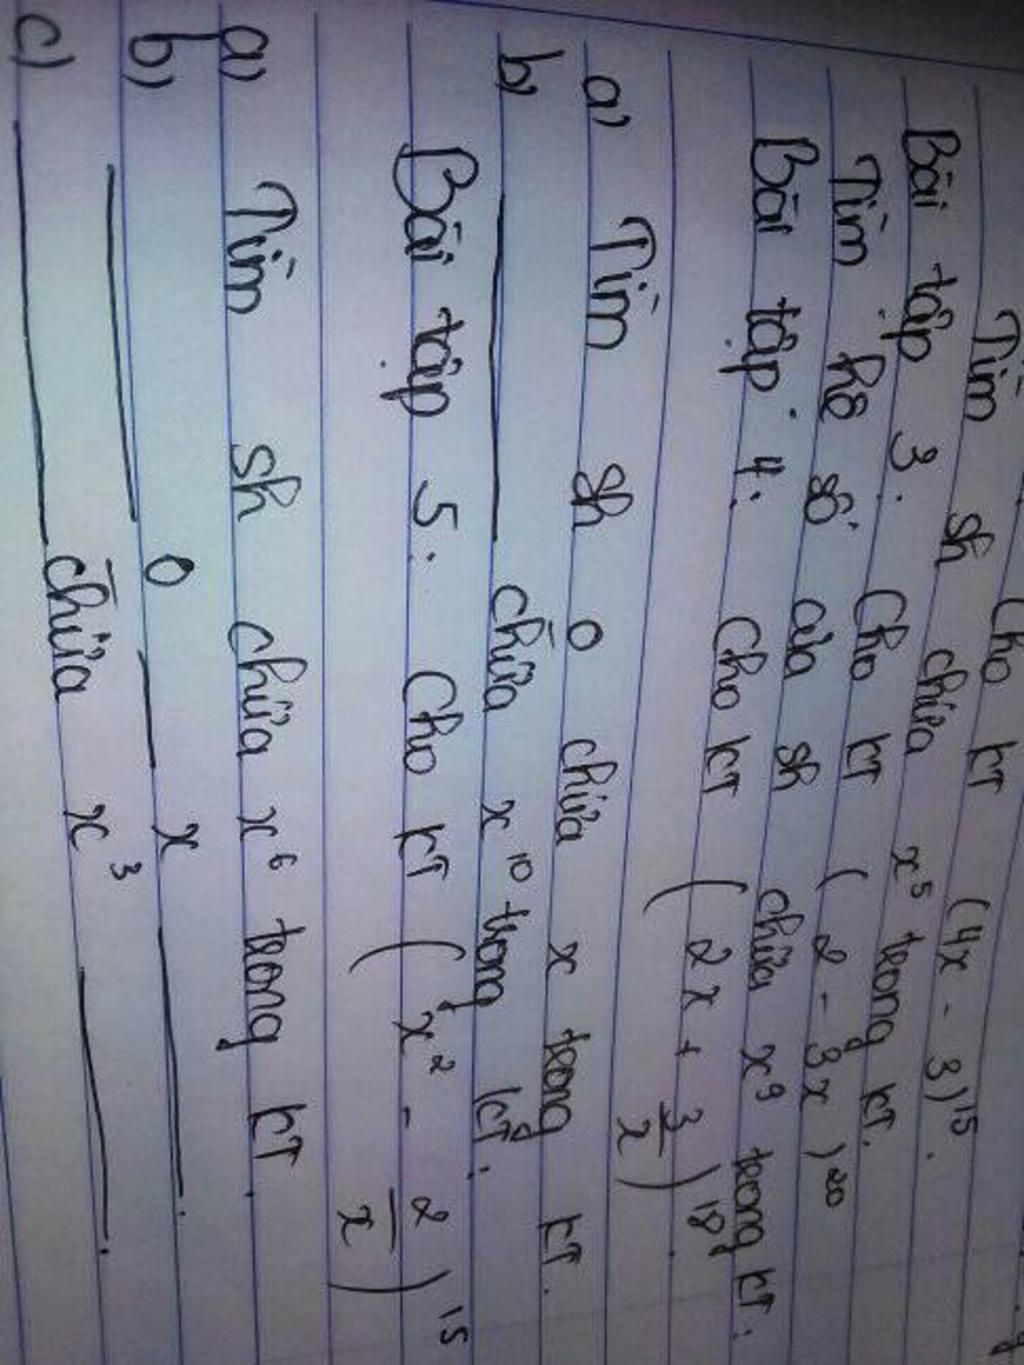 Cho KT (4x - 3)¹⁵.
Tìm sh chứa x⁵ trong KT.
Bài tập 3: Cho KT (2 - 3x)²⁰
Tìm hệ số của sh chứa x⁹ trong KT.
Bài tập 4: Cho KT (2x + 3/x)¹⁸.
a) Tìm sh o chứa x trong KT.
b) ——— chứa x¹⁰ trong KT.
Bài tập 5: Cho KT (x² - 2/x)¹⁵
a) Tìm sh chứa x⁶ trong KT.
b) ——— o — x ———.
c) ——— chứa x³ ———.